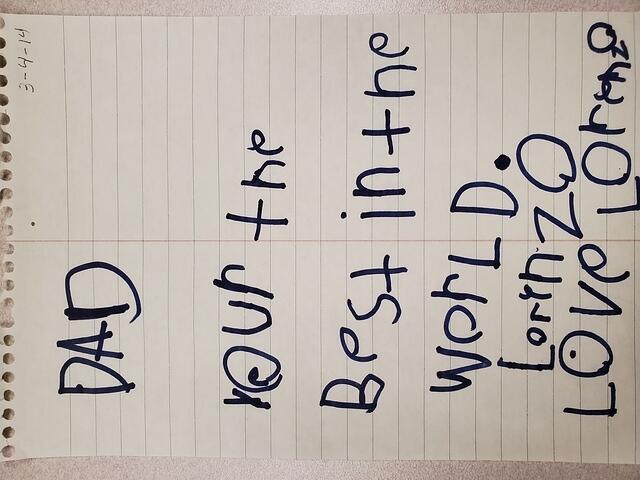 3-4-14
DAD
your the
Best in the
WorLD.
LorenZO
LOVe LOrenzo